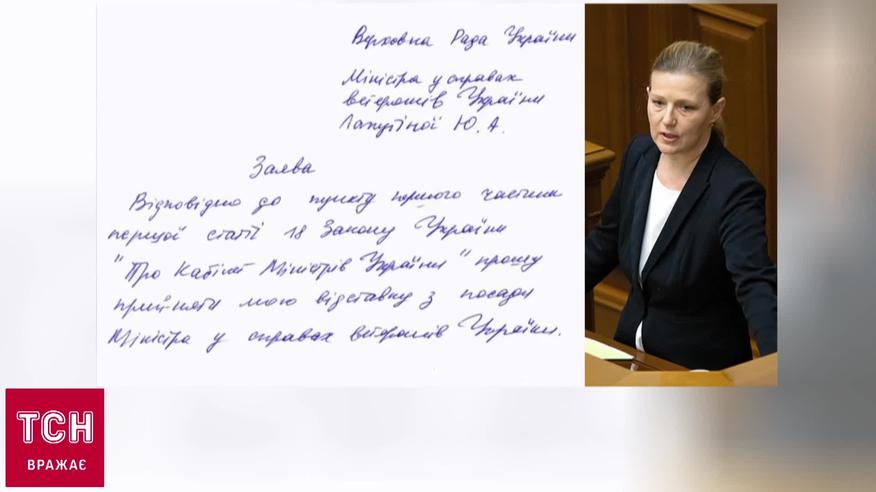 Верховна Рада України
Міністра у справах
ветеранів України
Лапутіної Ю. А.
Заява
Відповідно до пункту першого частини
першої статті 18 Закону України
"Про Кабінет Міністрів України" прошу
прийняти мою відставку з посади
Міністра у справах ветеранів України.
ТСН
ВРАЖАЄ